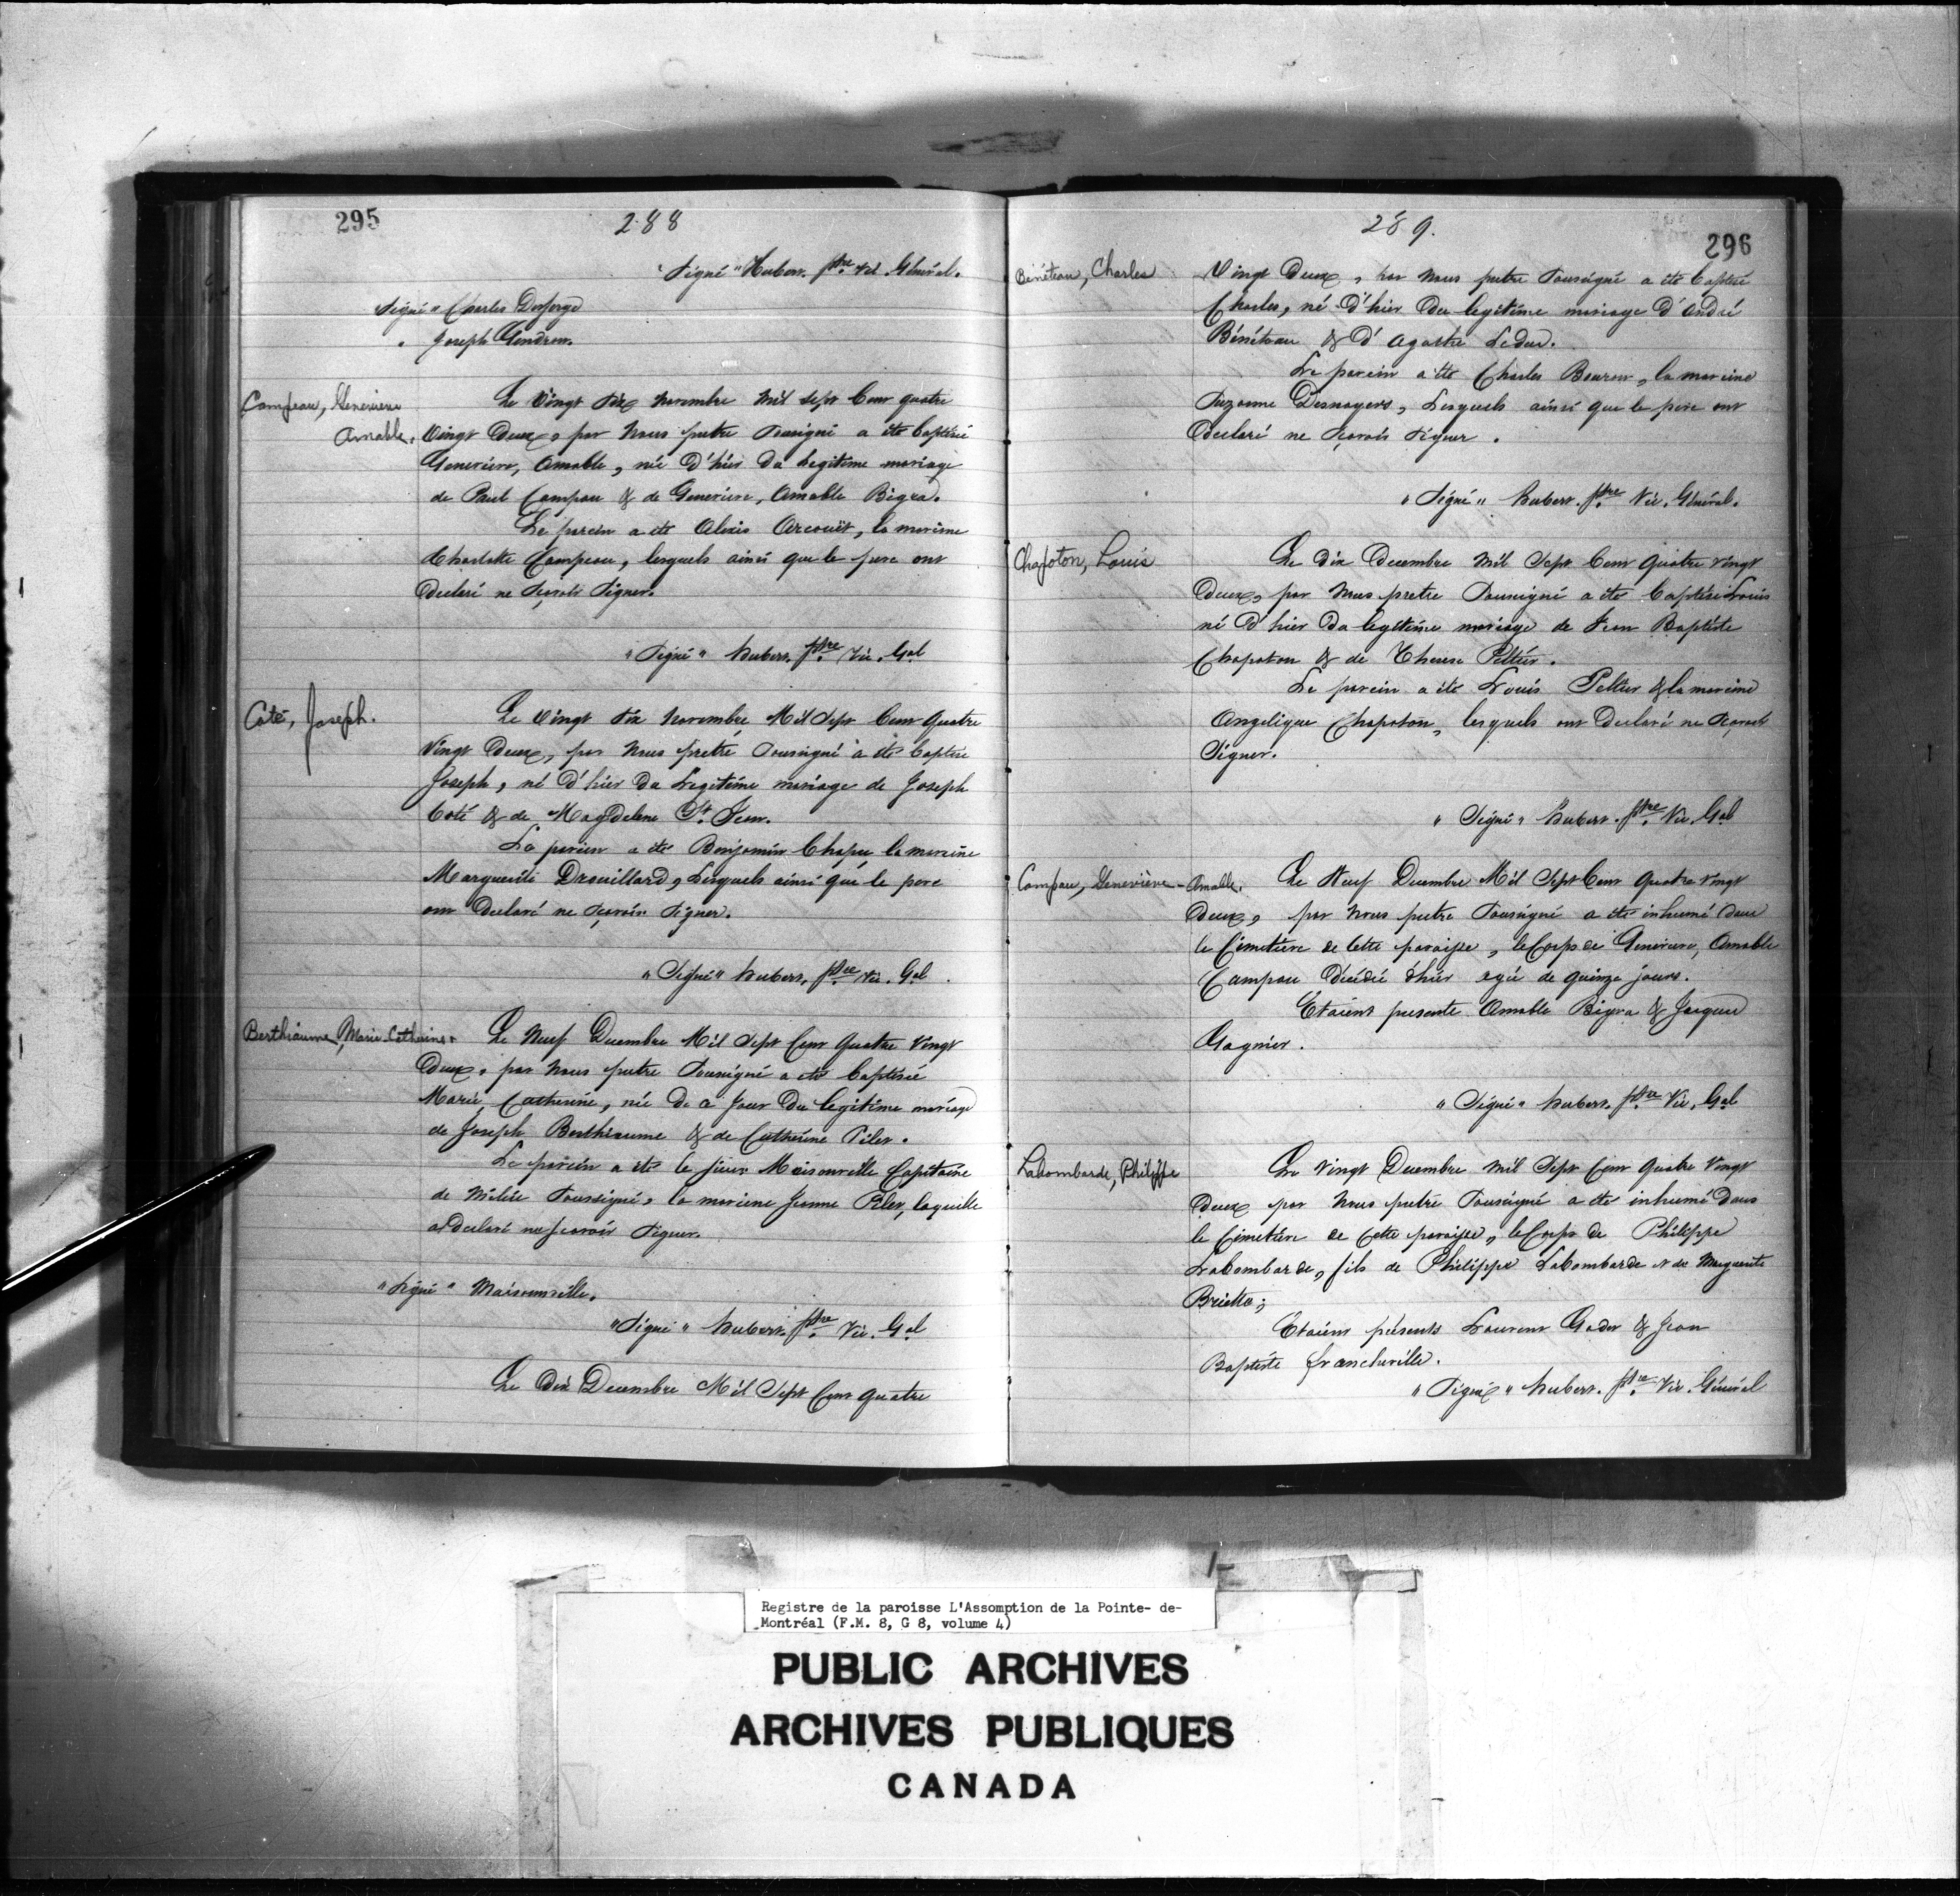 295
288
"Signé" Hubert. ptre Vic. Général.
Signé "Charles Desforge
" Joseph Gendron.
Campeau, Genevieve
Amable.
Le Vingt Six Novembre Mil Sept Cent quatre
Vingt Deux, par Nous pretre Soussigné a été baptisé
Genevieve, Amable, née D'hier du Legitime mariage
de Paul Campau & de Genevieve, Amable Bigra.
Le parein a été Alexis Arcouët, la mareine
Charlotte Campeau, lesquels ainsi que le pere ont
Declaré ne Sçavoir Signer.
"Signé" hubert. ptre Vic. Gal
Coté, Joseph.
Le Vingt Six Novembre Mil Sept Cent Quatre
Vingt Deux, par Nous pretre Soussigné a été baptisé
Joseph, né D'hier du Legitime mariage de Joseph
Coté & de Magdelene St. Jean.
Le parein a été Benjamin Chapu la mareine
Marguerite Drouillard, Lesquels ainsi que le pere
ont Declaré ne Sçavoir Signer.
"Signé" hubert, ptre Vic. Gal
Berthiaume, Marie-Catherine.
Le Neuf Decembre Mil Sept Cent Quatre Vingt
Deux, par Nous pretre Soussigné a été baptisée
Marie, Catherine, née de ce Jour du legitime mariage
de Joseph Berthiaume & de Catherine Piler.
Le parein a été le sieur Maisonville Capitaine
de Milice Soussigné, la mareine Jeanne Piler, laquelle
a Declaré ne sçavoir Signer.
"Signé" Maisonville.
"Signé" hubert. ptre Vic. Gal
Le Dix Decembre Mil Sept Cent quatre
289.
296
Bénéteau, Charles
Vingt Deux, par Nous pretre Soussigné a été baptisé
Charles, né D'hier du legitime mariage D'André
Bénéteau & D'Agathe Leduc.
Le parein a été Charles Bouron, la mareine
Suzanne Desnoyers, Lesquels ainsi que le pere ont
Declaré ne Sçavoir Signer.
"Signé" hubert. ptre Vic. Général.
Chapoton, Louis
Le Dix Decembre Mil Sept Cent Quatre Vingt
Deux, par Nous pretre Soussigné a été baptisé Louis
né D'hier du legitime mariage de Jean Baptiste
Chapoton & de Therese Peltier.
Le parein a été Louis Peltier & la mareine
Angelique Chapoton, lesquels ont Declaré ne Sçavoir
Signer.
"Signé" hubert. ptre Vic. Gal
Campau, Geneviève-Amable.
Le Neuf Decembre Mil Sept Cent Quatre Vingt
Deux, par Nous pretre Soussigné a été inhumé dans
le Cimetiere de Cette paroisse, le Corps de Genevieve, Amable
Campau Décédée D'hier agée de quinze jours.
Etaient presents Amable Bigra & Jacques
Gagnier.
"Signé" hubert. ptre Vic. Gal
Labombarde, Philippe
Le Vingt Decembre Mil Sept Cent Quatre Vingt
Deux par Nous pretre Soussigné a été inhumé Dans
le Cimetiere de Cette paroisse, le Corps de Philippe
Labombarde, fils de Philippe Labombarde et de Marguerite
Etaient présents Laurent & Jean
Baptiste francheville.
"Signé" hubert. ptre Vic. Général
Registre de la paroisse L'Assomption de la Pointe- de-
Montréal (F.M. 8, G 8, volume 4)
PUBLIC ARCHIVES
ARCHIVES PUBLIQUES
CANADA